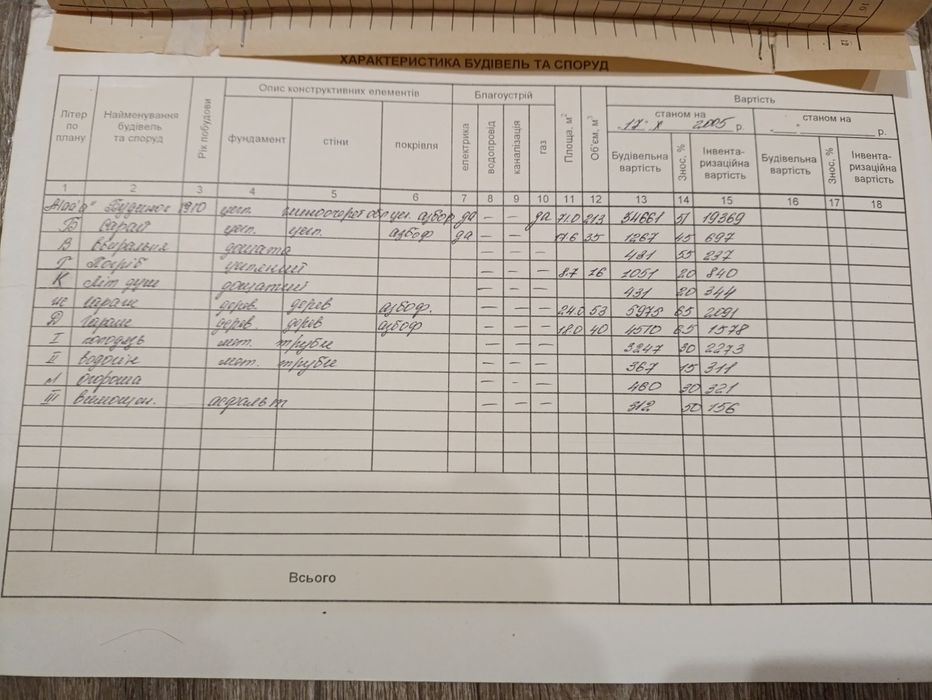 ХАРАКТЕРИСТИКА БУДІВЕЛЬ ТА СПОРУД
Літер по плану
Найменування будівель та споруд
Рік побудови
Опис конструктивних елементів
фундамент стіни покрівля
Благоустрій
електрика водопровід каналізація газ
Площа, м²
Об'єм, м³
Вартість
станом на
"17" X 2005 р.
станом на
р.
Будівельна вартість Знос, % Інвента-ризаційна вартість Будівельна вартість Знос, % Інвента-ризаційна вартість
1 2 3 4 5 6 7 8 9 10 11 12 13 14 15 16 17 18
Будинок 1910 цегл. азбоф да — — да 71.0 213 34661 51 19369
Б Сарай цегл. цегл. азбоф да — — 17.6 35 1267 45 697
В Вбиральня дощата — — — 431 55 237
Г Погріб — — — 8.7 16 1051 20 840
К Літ душ дощатий — — — 431 20 344
гараж дерев. дерев азбоф. — — — 24.0 53 5975 65 2091
Д Гараж дерев. дерев азбоф — — — 18.0 40 4510 65 1578
I колодязь мет. труби — — — 3247 30 2273
II мет. труби — — — 367 15 311
огорожа — — — 460 30 321
III вимощен. асфальт — — — 312 50 156
Всього